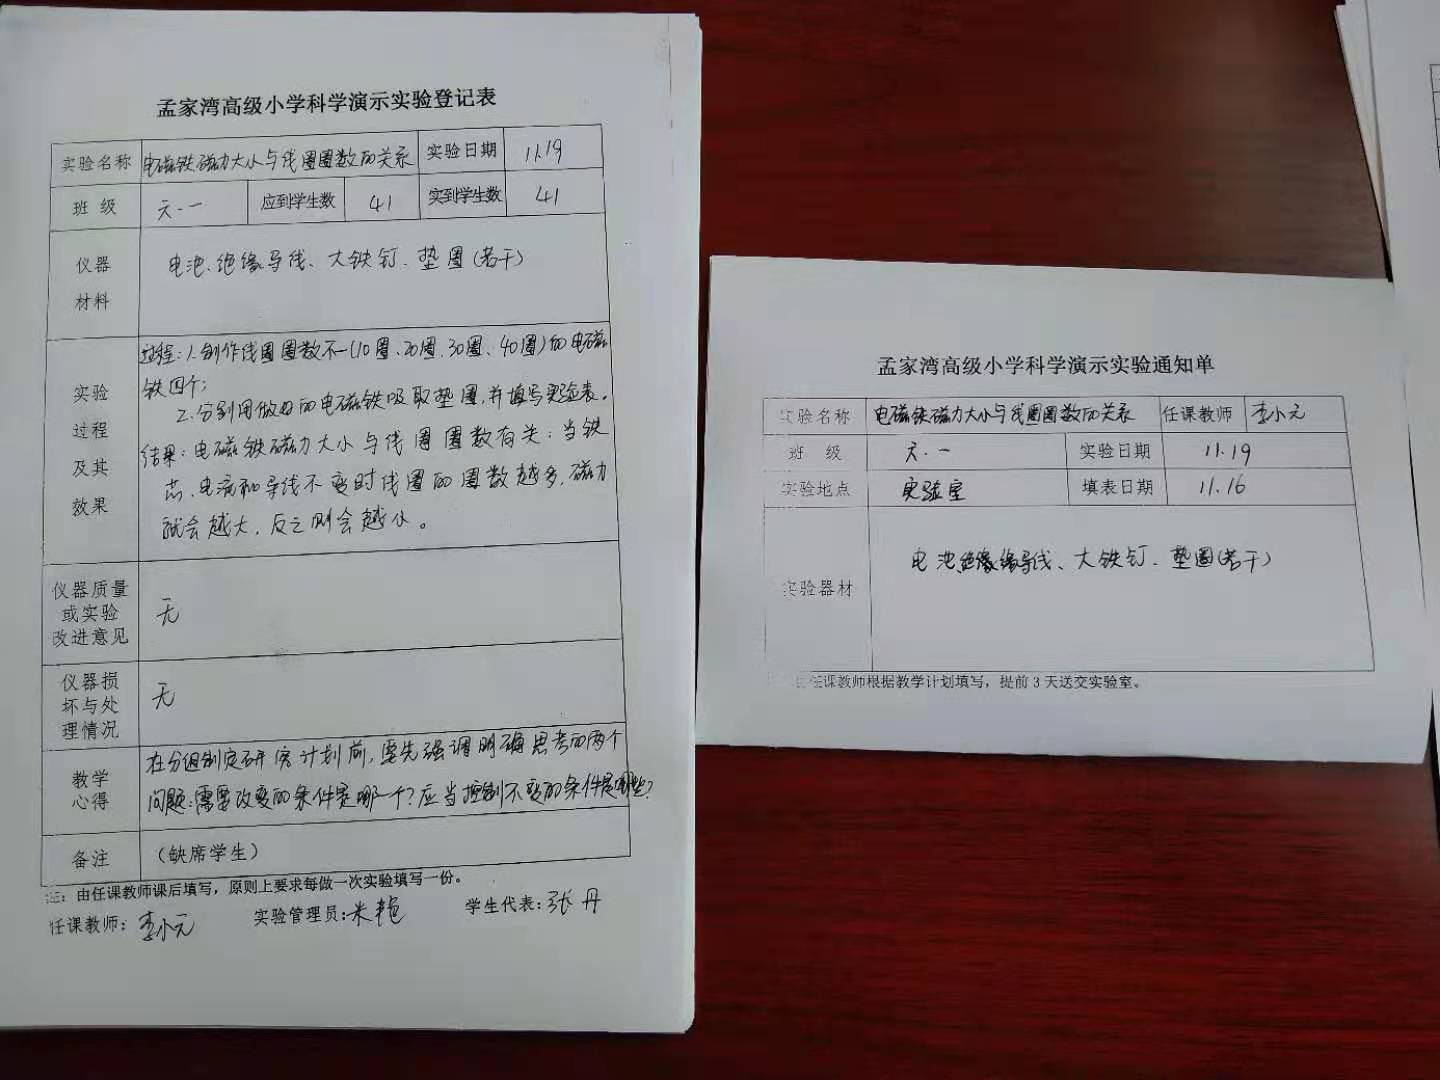 孟家湾高级小学科学演示实验登记表
实验名称 电磁铁磁力大小与线圈圈数的关系 实验日期 11.19
班 级 六.一 应到学生数 41 实到学生数 41
仪器
材料
电池、绝缘导线、大铁钉、垫圈(若干)
实验
过程
及其
效果
过程:1.制作线圈圈数不一(10圈、20圈、30圈、40圈)的电磁
铁四个;
2.分别用做好的电磁铁吸取垫圈,并填写实验表。
结果:电磁铁磁力大小与线圈圈数有关:当铁
芯、电流和导线不变时线圈的圈数越多,磁力
就会越大,反之则会越小。
仪器质量
或实验
改进意见
无
仪器损
坏与处
理情况
无
教学
心得
在分组制定研究计划前,要先强调明确思考的两个
问题:需要改变的条件是哪一个?应当控制不变的条件是哪些?
备注 (缺席学生)
注:由任课教师课后填写,原则上要求每做一次实验填写一份。
任课教师:李小元 实验管理员:米艳 学生代表:张丹
孟家湾高级小学科学演示实验通知单
实验名称 电磁铁磁力大小与线圈圈数的关系 任课教师 李小元
班 级 六.一 实验日期 11.19
实验地点 实验室 填表日期 11.16
实验器材 电池、绝缘导线、大铁钉、垫圈(若干)
任课教师根据教学计划填写,提前3天送交实验室。